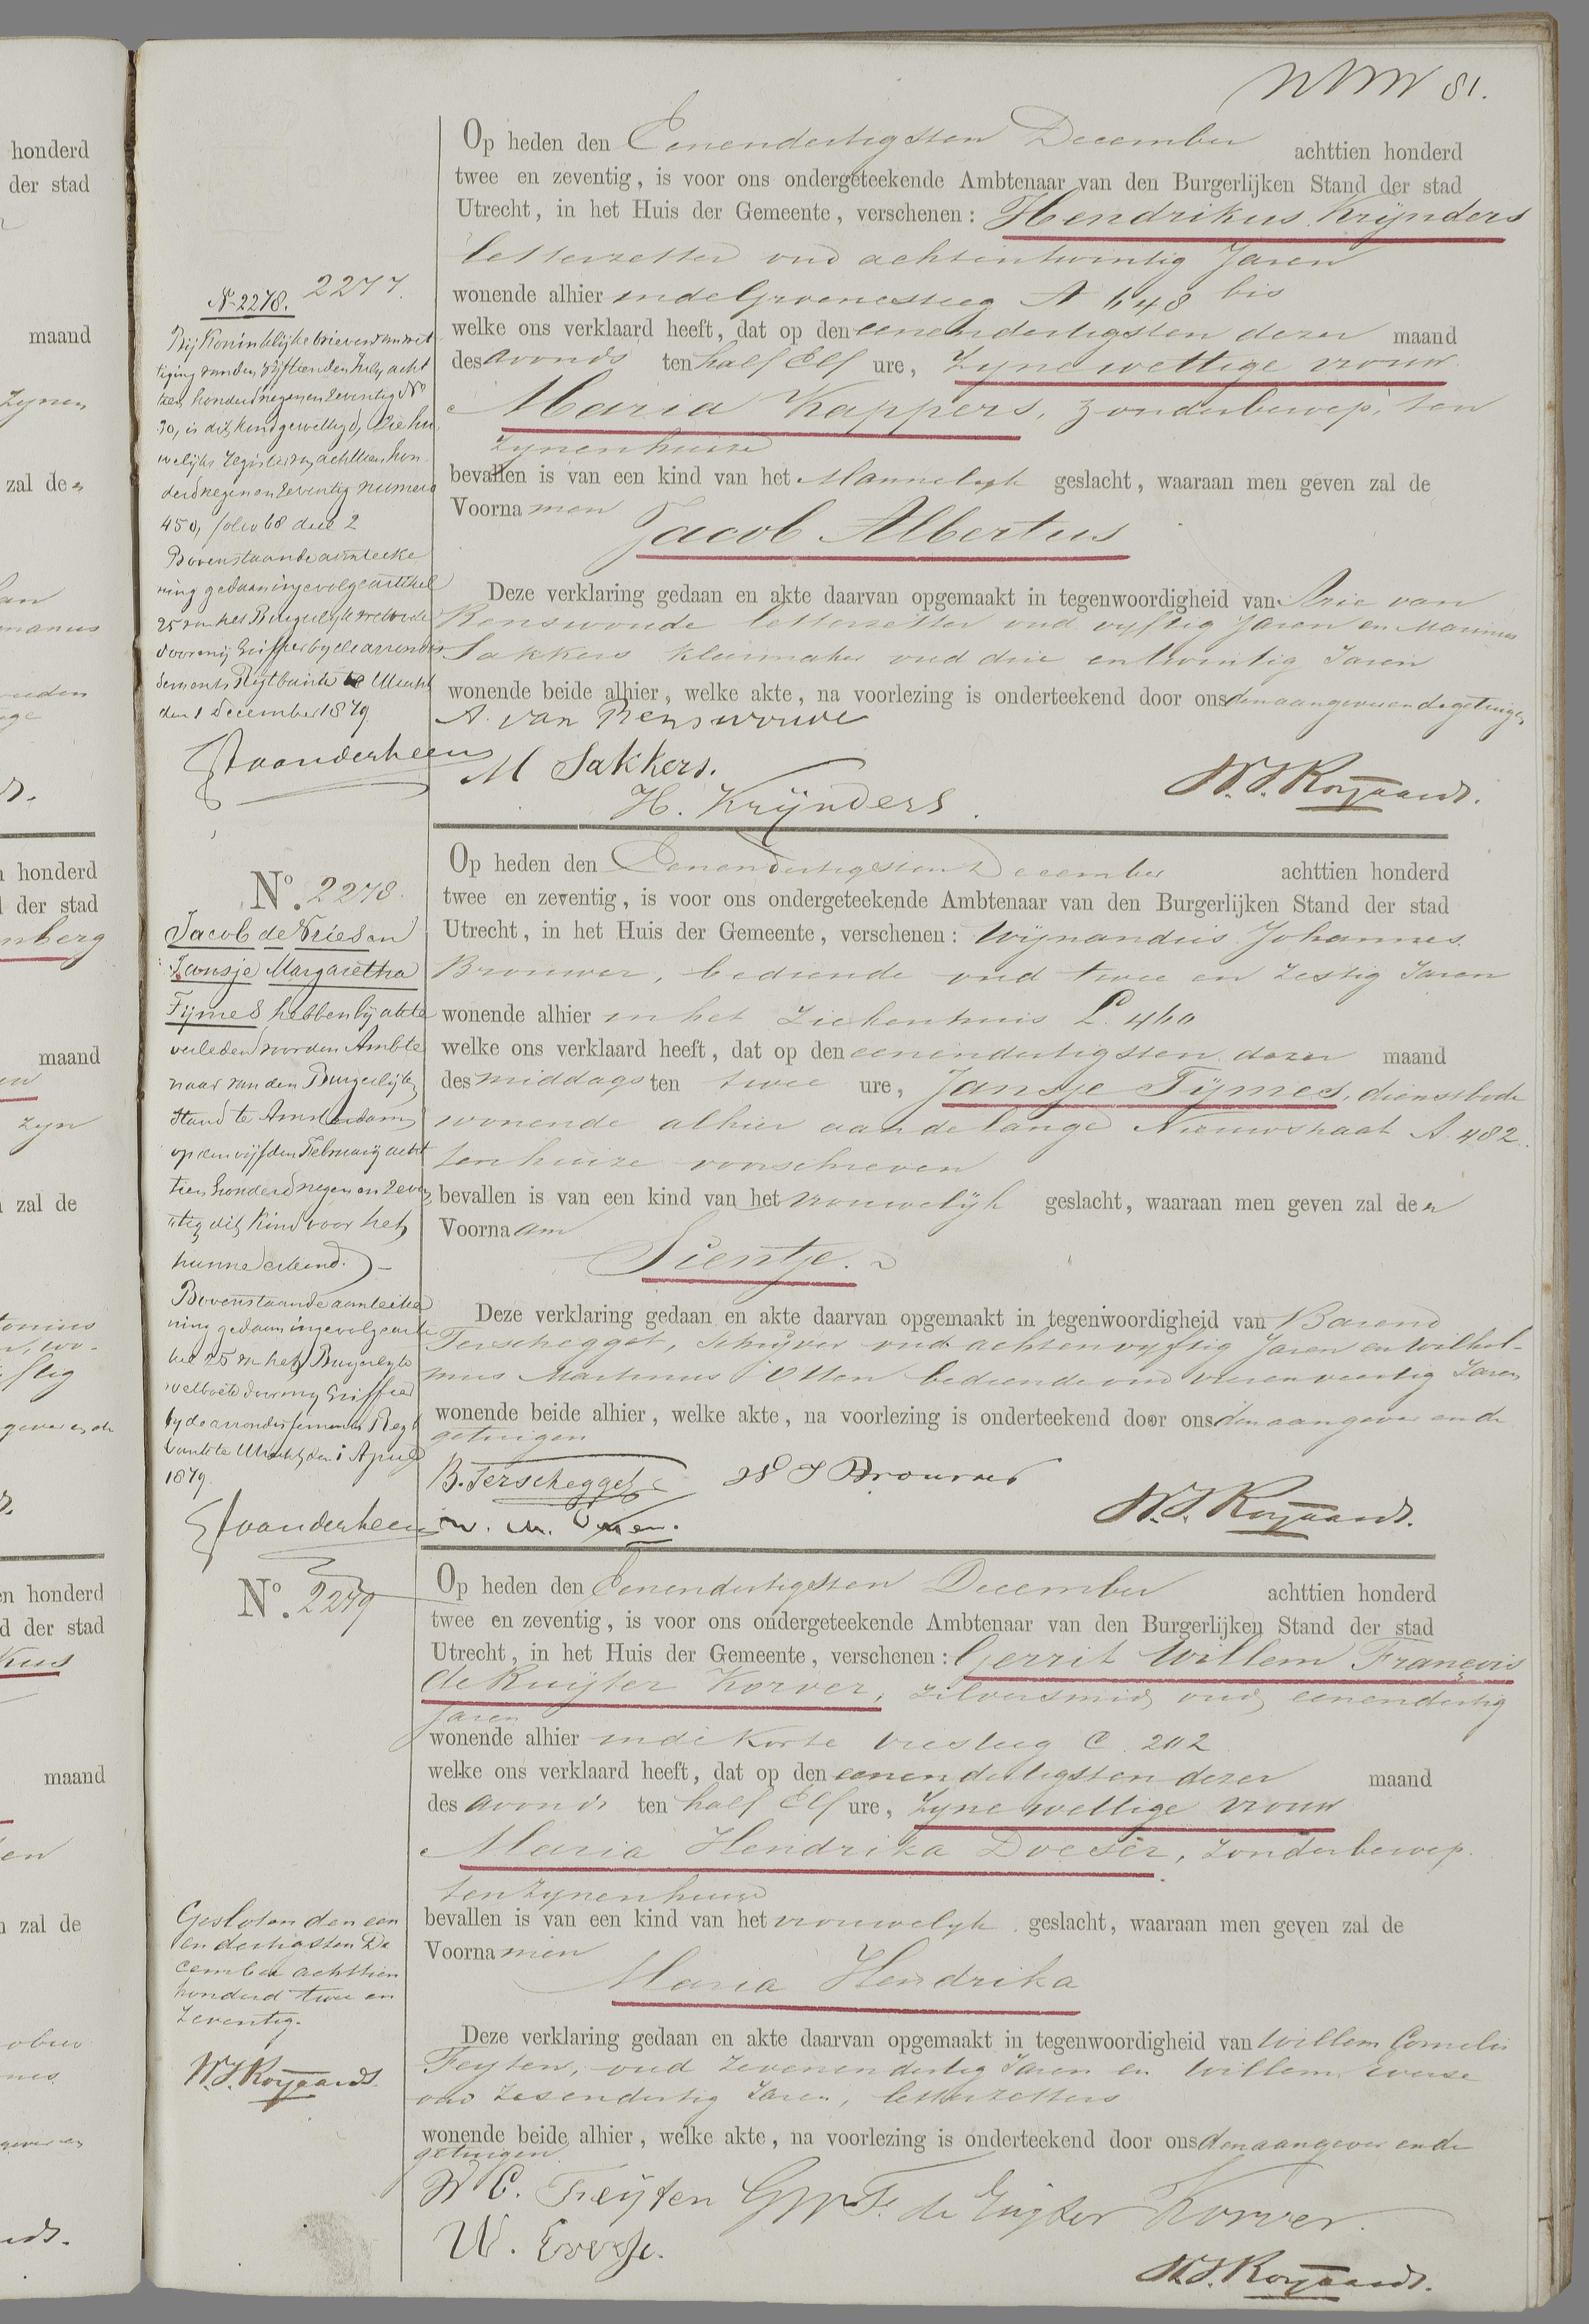 81.
2277.
Op heden den Eenendertigsten December achttien honderd
twee en zeventig, is voor ons ondergeteekende Ambtenaar van den Burgerlijken Stand der stad
Utrecht, in het Huis der Gemeente, verschenen: Hendrikus Krijnders
letterzetter oud achtentwintig Jaren
wonende alhier in de Groenesteeg A 648 bis
welke ons verklaard heeft, dat op den eenendertigsten dezer maand
des avonds ten half Elf ure, zyne wettige vrouw
Maria Kappers, zonder beroep, ten
zynen huize
bevallen is van een kind van het Mannelyk geslacht, waaraan men geven zal de
Voornamen
Jacob Albertus
Deze verklaring gedaan en akte daarvan opgemaakt in tegenwoordigheid van Arie van
Renswoude letterzetter oud vyftig Jaren en Marinus
Sakkers kleermaker oud drie entwintig Jaren
wonende beide alhier, welke akte, na voorlezing is onderteekend door ons den aangever en de getuigen
A. van Renswoude
M Sakkers.
H. Krijnders.
W.J. Royaards.
No 2278.
Bij Koninklijke brieven van wet
tiging van den vijftienden July acht
tien honderd negen en zeventig No
30, is dit kind gewettigd, Zie hu
welijks register van achttien hon
derd negen en zeventig numero
450, folio 68 deel 2
Bovenstaande aanteeke
ning gedaan ingevolge artikel
25 van het Burgerlyk wetboek
door mij Griffier by de arrondis
sements Regtbank te Utrecht
den 1 December 1879
No. 2278.
Jacob de Vries en
Jansje Margaretha
Tijmes hebben bij akte
verleden voor den Ambte
naar van den Burgerlijken
Stand te Amsterdam
op den vijfden February acht
tien honderd negen en zeven
tig dit kind voor het
hunne erkend.
Bovenstaande aanteeke
ning gedaan ingevolge arti
kel 25 van het Burgerlyk
wetboek door my Griffier
by de arrondissements Regt
bank te Utrecht, den 1 April
1879.
Op heden den Eenendertigsten December achttien honderd
twee en zeventig, is voor ons ondergeteekende Ambtenaar van den Burgerlijken Stand der stad
Utrecht, in het Huis der Gemeente, verschenen: Wijnandus Johannes
Brouwer, bediende oud twee en zestig Jaren
wonende alhier in het Ziekenhuis L. 460
welke ons verklaard heeft, dat op den eenendertigsten dezer maand
des middags ten twee ure, Jansje Tijmes, dienstbode
wonende alhier aan de lange Nieuwstraat A. 482
ten huize voorschreven
bevallen is van een kind van het vrouwelijk geslacht, waaraan men geven zal den
Voornaam
Sientje.
Deze verklaring gedaan en akte daarvan opgemaakt in tegenwoordigheid van Barend
Terschegget, schrijver oud achtenvyftig Jaren en Wilhel-
mus Martinus Otten bediende oud vierenveertig Jaren
wonende beide alhier, welke akte, na voorlezing is onderteekend door ons den aangever en de
getuigen
B. Terschegget W J Brouwer
W. M. Otten.
W.J. Royaards.
No. 2279
Op heden den Eenendertigsten December achttien honderd
twee en zeventig, is voor ons ondergeteekende Ambtenaar van den Burgerlijken Stand der stad
Utrecht, in het Huis der Gemeente, verschenen: Gerrit Willem François
de Ruijter Korver, zilversmid, oud eenendertig
Jaren
wonende alhier in de Korte Viesteeg C. 202
welke ons verklaard heeft, dat op den eenendertigsten dezer maand
des avonds ten half Elf ure, zyne wettige vrouw
Maria Hendrika Doeser, zonder beroep
ten zynen huize
bevallen is van een kind van het vrouwelyk geslacht, waaraan men geven zal de
Voornamen
Maria Hendrika
Deze verklaring gedaan en akte daarvan opgemaakt in tegenwoordigheid van Willem Cornelis
Feyten, oud zevenendertig Jaren en Willem Everse
oud zesendertig Jaren, letterzetters
wonende beide alhier, welke akte, na voorlezing is onderteekend door ons den aangever en de
getuigen
W C. Feyten G W F. de Ruyter Korver.
W. Everse.
W.J. Royaards.
Gesloten den een
en dertigsten De
cember achttien
honderd twee en
zeventig.
W.J. Royaards